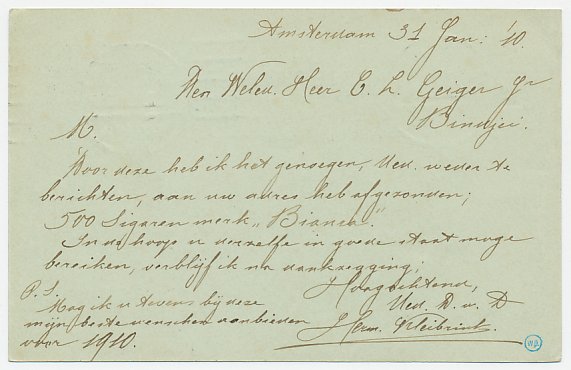 Amsterdam 31 Jan: '10.
Den Weled. Heer C. L. Geiger Jr
Bindjei.
M.
Door deze heb ik het genoegen, Ued. weder te
berichten, aan uw adres heb afgezonden;
500 Sigaren merk „Bianca".
In de hoop u derzelfe in goede staat moge
bereiken, verblijf ik na dankzegging;
Hoogachtend,
Ued. D. v. D
Herm. Kleibrink.
P.S.
Mag ik u tevens bij deze
mijn beste wenschen aanbieden
voor 1910.